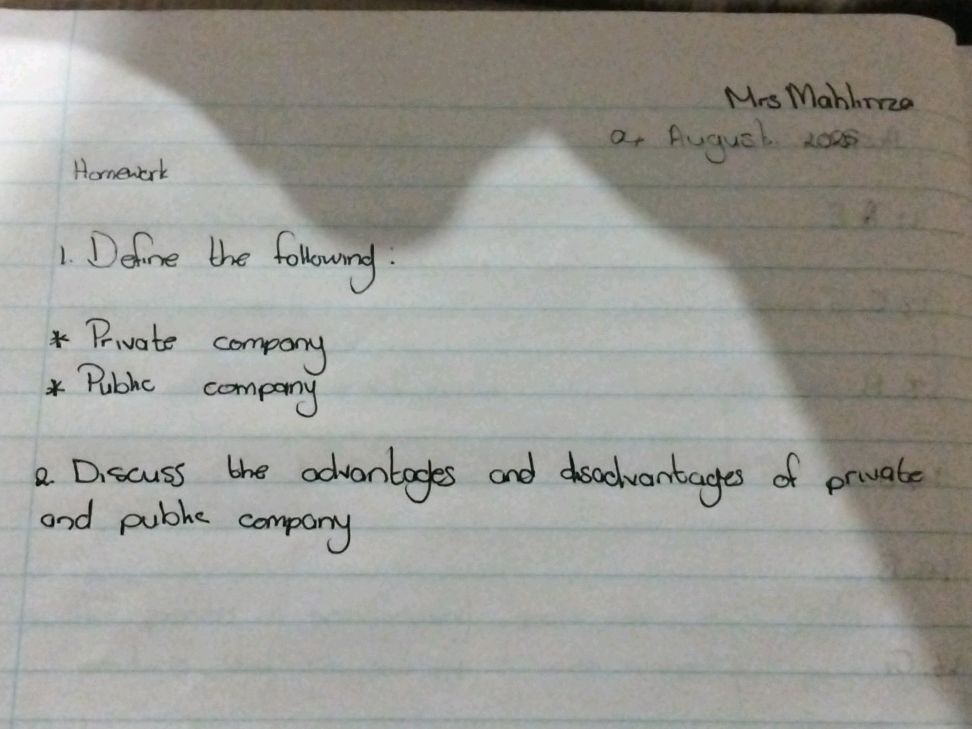 Mrs
August
Homework
1. Define the following:
* Private company
* Public company
2. Discuss the advantages and disadvantages of private
and public company